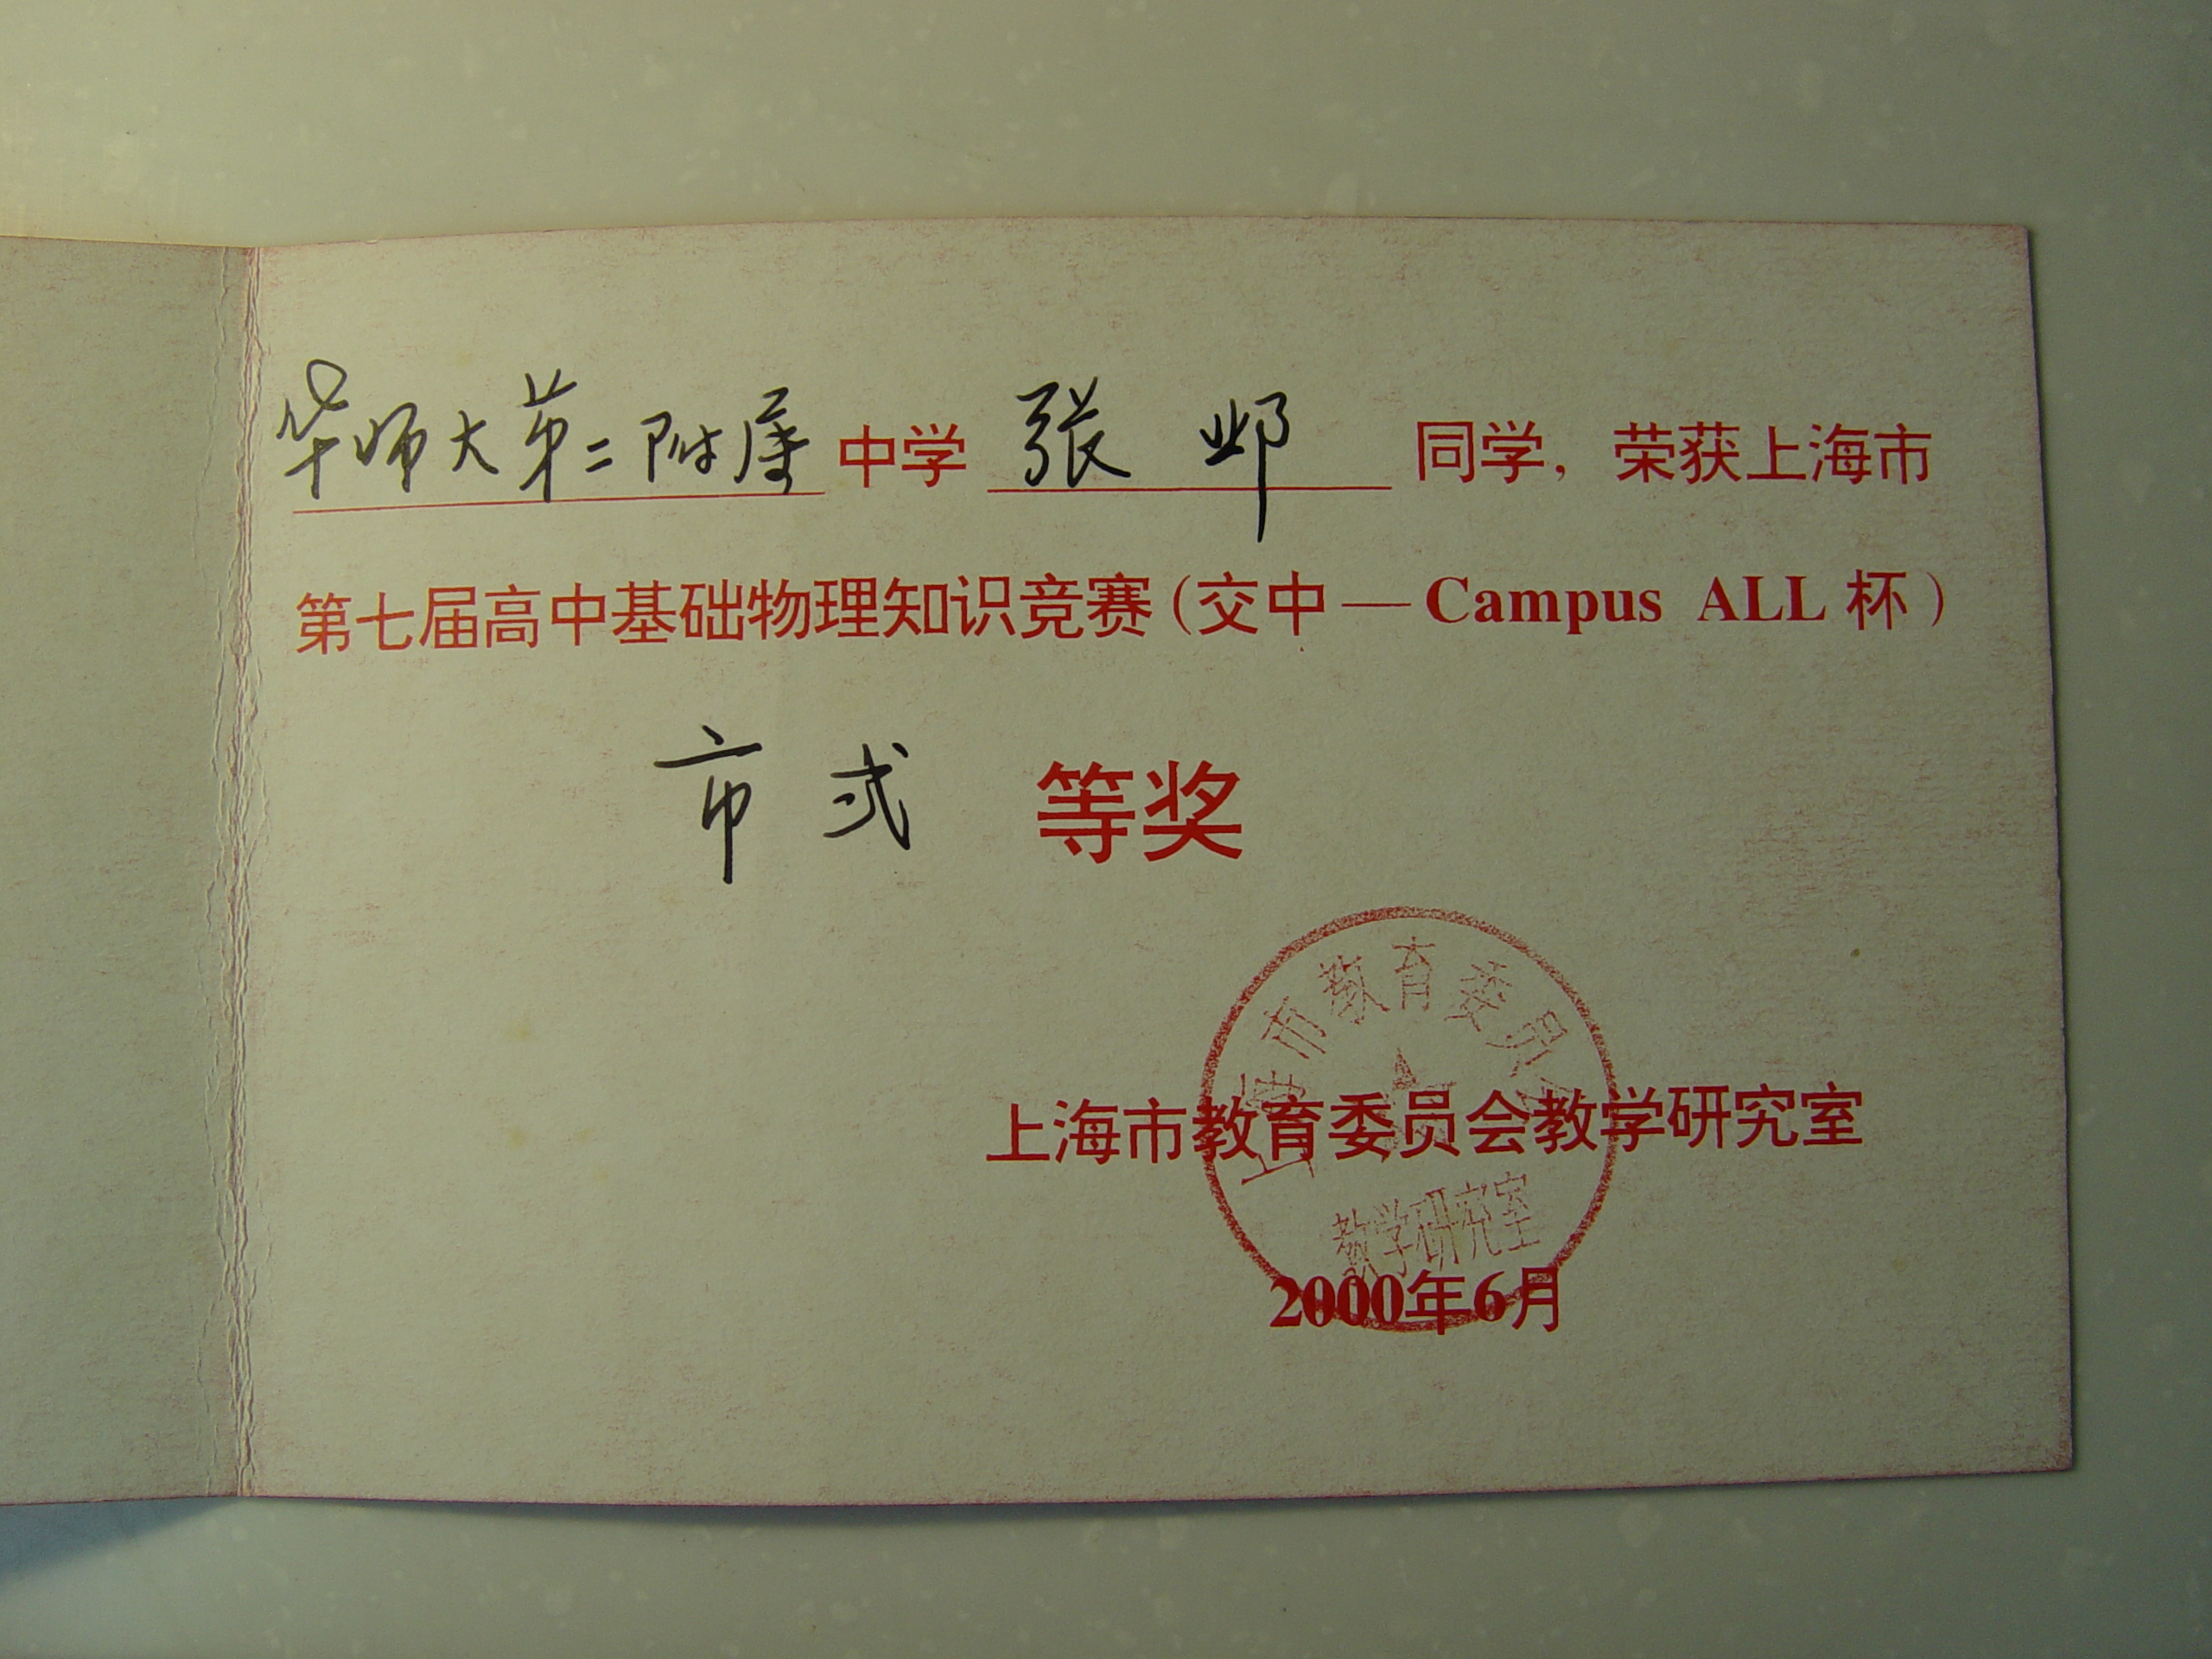 华师大第二附属中学 张邺 同学，荣获上海市
第七届高中基础物理知识竞赛（交中—Campus ALL 杯）
市弍 等奖
上海市教育委员会
上海市教育委员会教学研究室
教学研究室
2000年6月